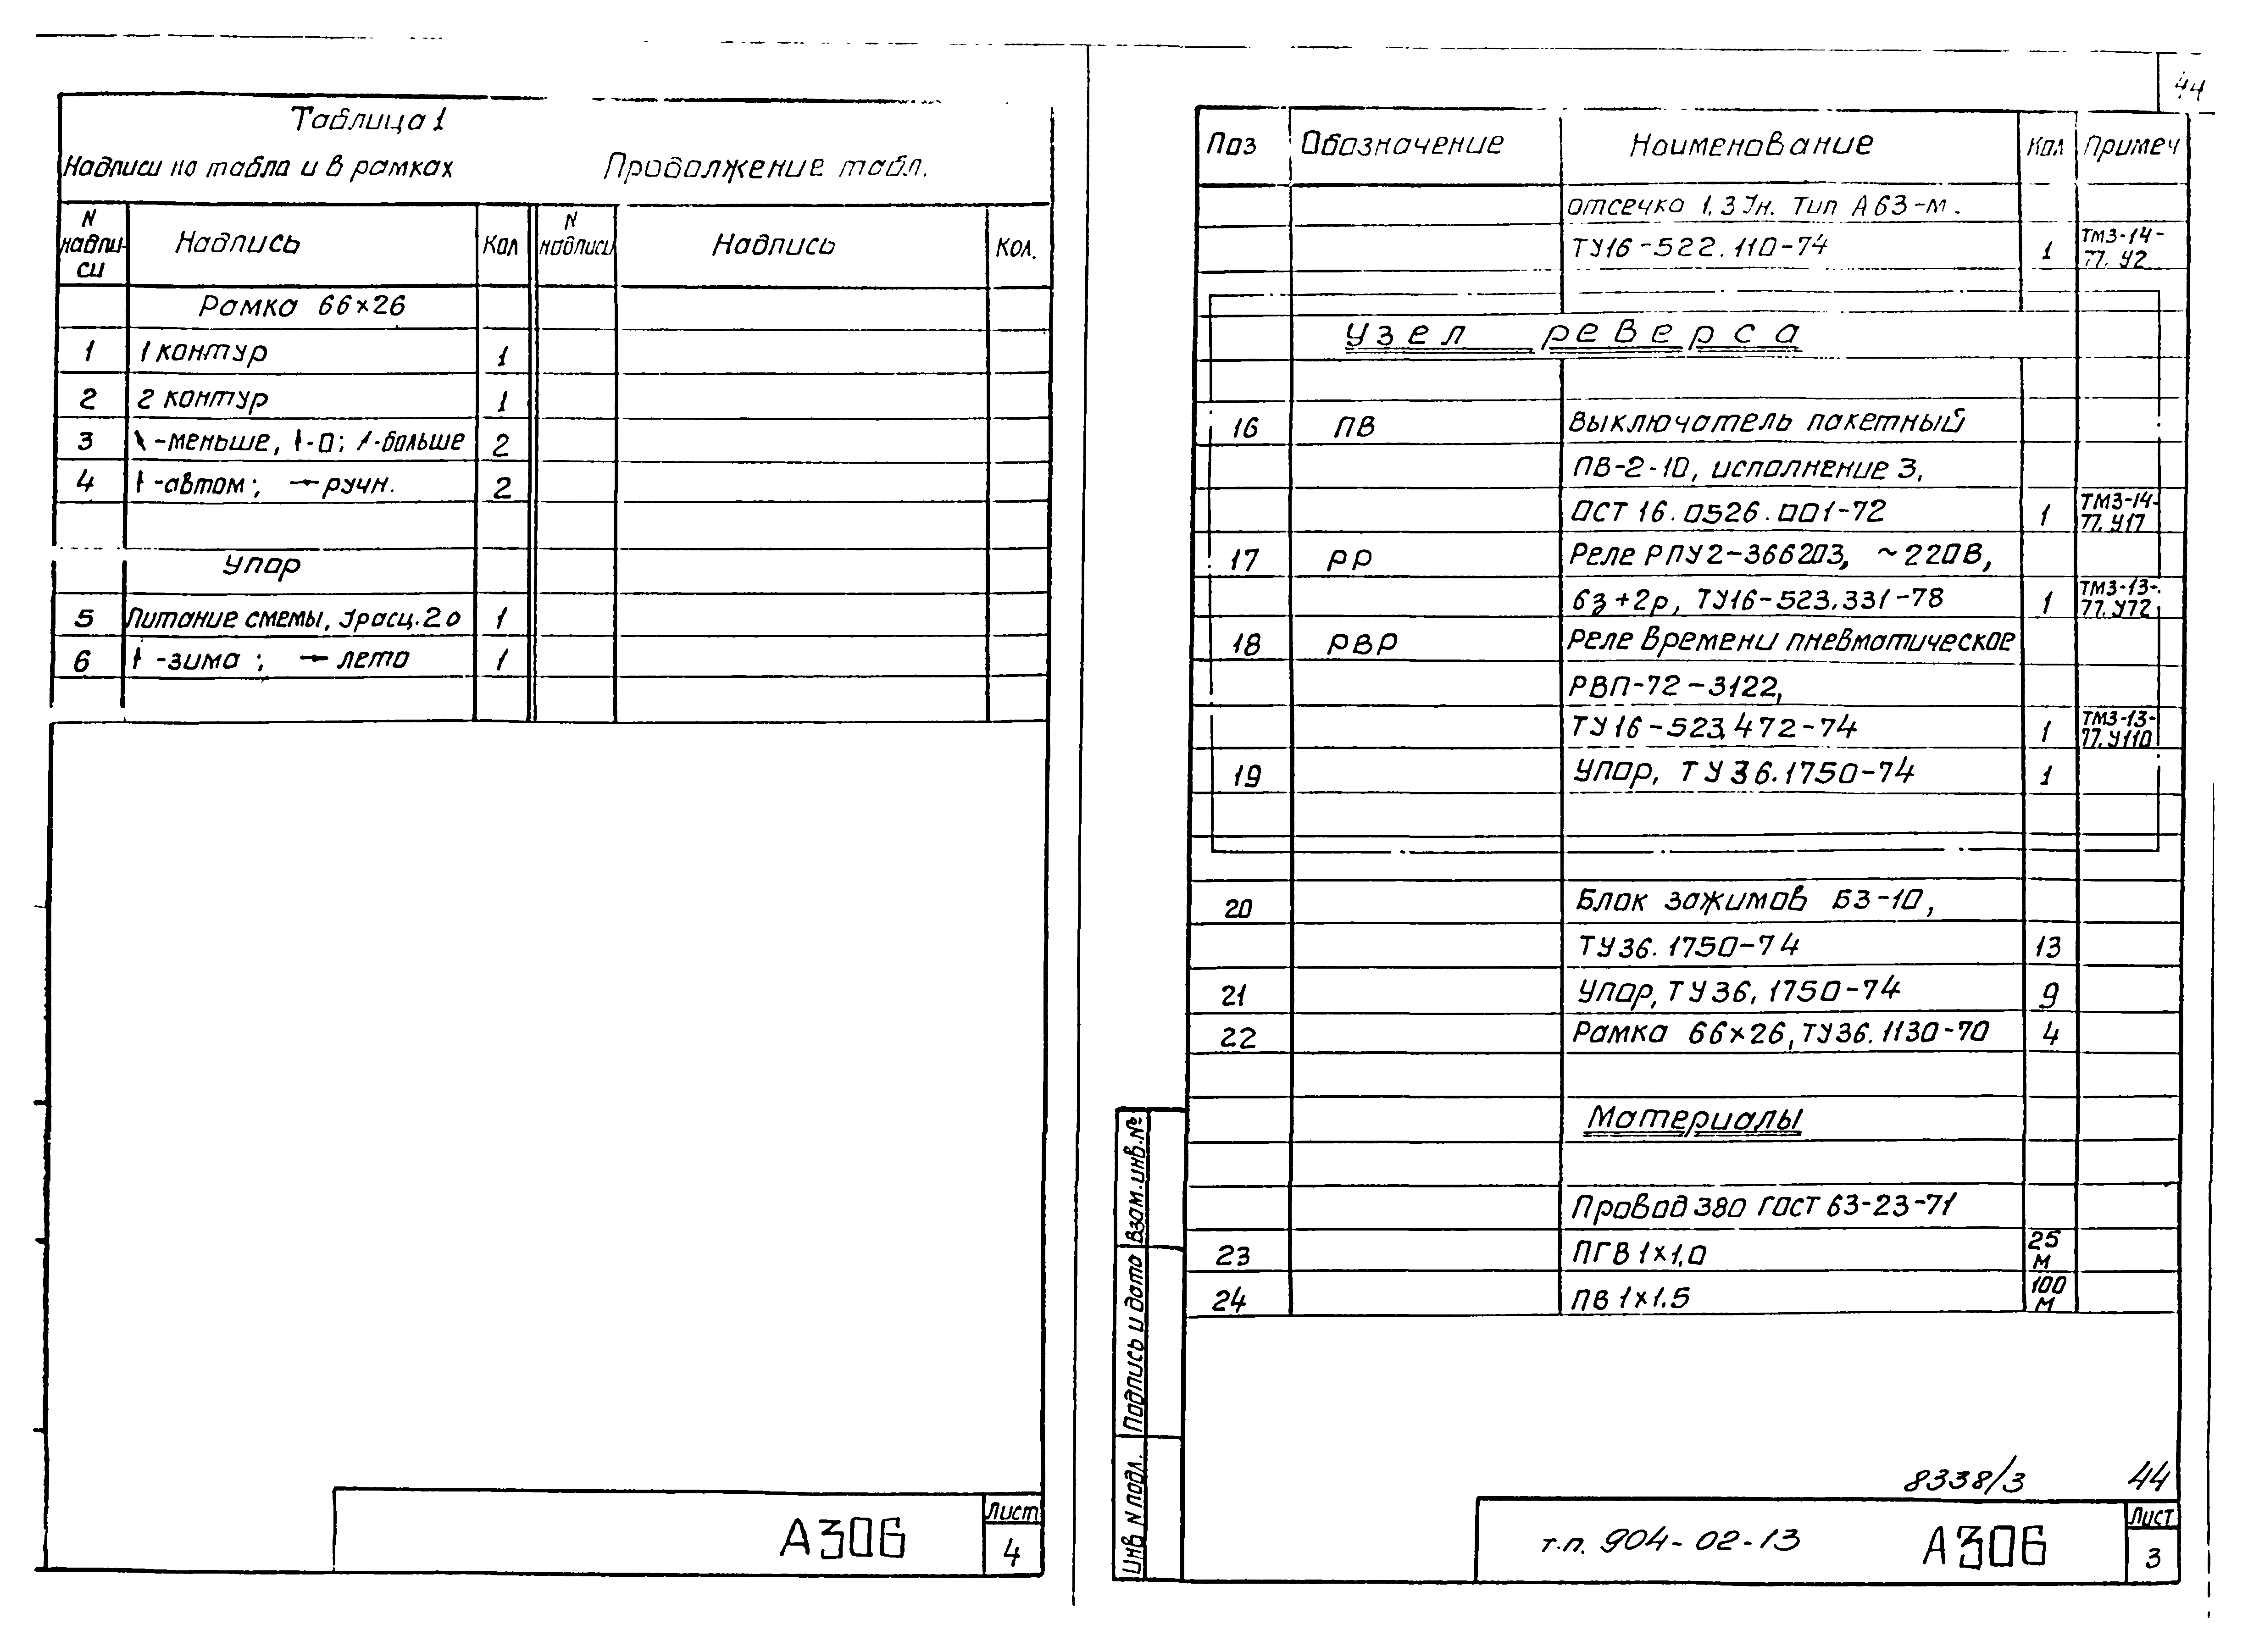 Таблица 1
Надписи на табло и в рамках
Продолжение табл.
N надпи-си Надпись Кол N надписи Надпись Кол.
Рамка 66×26
1 1 контур 1
2 2 контур 1
3 -меньше, -0; -больше 2
4 -автом; ручн. 2
Упор
5 Питание смемы, Iрасц.2о 1
6 -зима; лето 1
А306
Лист
4
44
Поз Обозначение Наименование Кол Примеч
отсечка 1,3 Iн. Тип А63-м.
ТУ16-522.110-74 1 ТМ3-14-77.У2
Узел реверса
16 ПВ Выключатель пакетный
ПВ-2-10, исполнение 3,
ОСТ 16.0526.001-72 1 ТМ3-14-77.У17
17 РР Реле РПУ2-366203, ~220В,
6з+2р, ТУ16-523.331-78 1 ТМ3-13-77.У72
18 РВР Реле времени пневматическое
РВП-72-3122,
ТУ16-523.472-74 1 ТМ3-13-77.У110
19 Упор, ТУ36.1750-74 1
20 Блок зажимов БЗ-10,
ТУ36.1750-74 13
21 Упор, ТУ36.1750-74 9
22 Рамка 66×26, ТУ36.1130-70 4
Материалы
Провод 380 ГОСТ 63-23-71
23 ПГВ 1×1,0 25 м
24 ПВ 1×1.5 100 м
Взам.инв.№
Подпись и дата
Инв N подл.
8338/3 44
т.п. 904-02-13 А306
Лист
3